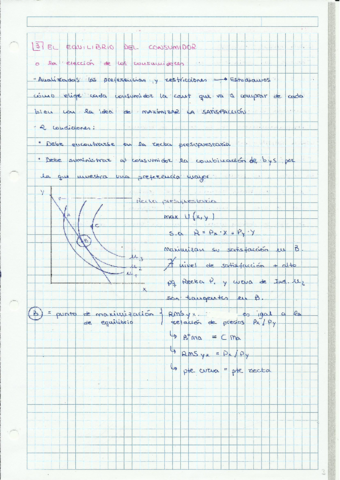 3 EL EQUILIBRIO DEL CONSUMIDOR
o la elección de los consumidores
- Analizadas las preferencias y restricciones → Estudiamos
cómo elige cada consumidor la cant que va a comprar de cada
bien con la idea de MAXIMIZAR LA SATISFACCIÓN
- 2 condiciones:
• Debe encontrarse en la recta presupuestaria
• Debe suministrar al consumidor la combinación de b y s por
la que muestra una preferencia mayor.
Y
recta presupuestaria
max U(x,y)
s.a R = Px · X + Py · Y
A
C
B
Maximizan su satisfacción en B.
∄ nivel de satisfacción + alto
µ3
µ2
µ1
X
pq Recta P. y curva de Ind. µ2
son tangentes en B.
B = punto de maximización
de equilibrio
RMSyx es igual a la
relación de precios Px/Py
↳ Bº Ma = C Ma
↳ RMSyx = Px/Py
↳ pte curva = pte recta